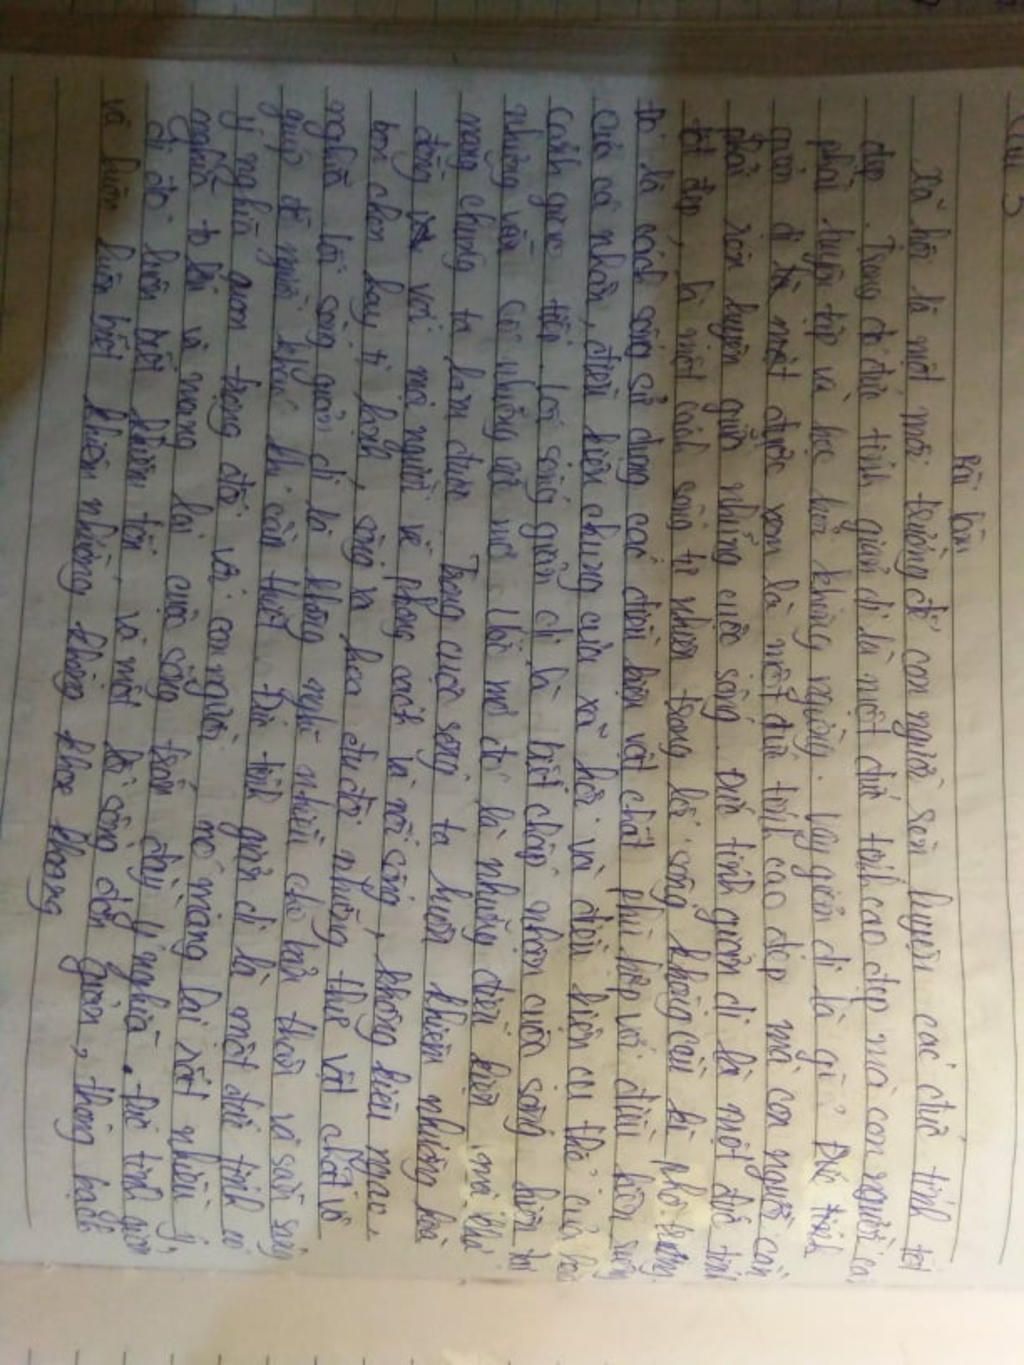 Câu 3
Bài làm
Xã hội là một môi trường để con người rèn luyện các đức tính tốt
đẹp. Trong đó đức tính giản dị là một đức tính cao đẹp mà con người cần
phải luyện tập và học hỏi không ngừng. Vậy giản dị là gì? Đức tính
giản dị là một được xem là một đức tính cao đẹp mà con người cần
phải rèn luyện giữa những cuộc sống. Đức tính giản dị là một đức tính
tốt đẹp, là một cách sống tự nhiên trong lối sống không cầu kì phô trương.
Đó là cách sống sử dụng các điều kiện vật chất phù hợp với điều kiện riêng
của cá nhân, điều kiện chung của xã hội và điều kiện cụ thể của
cảnh giao tiếp. Lối sống giản dị là biết chấp nhận cuộc sống hiện tại
nhưng vẫn có những ước mơ. Ước mơ đó là những điều kiện mà khả
năng chúng ta làm được. Trong cuộc sống ta luôn khiêm nhường hòa
đồng với mọi người về phong cách và lối sống, không kiêu ngạo,
bon chen hay tị hành, sống xa hoa đua đòi những thứ vật chất vô
nghĩa. Lối sống giản dị là không nghĩ nhiều cho bản thân và sẵn sàng
giúp đỡ người khác khi cần thiết. Đức tính giản dị là một đức tính có
ý nghĩa quan trọng đối với con người, nó mang lại rất nhiều ý
nghĩa to lớn và mang lại cuộc sống tràn đầy ý nghĩa. Đức tính giản
dị đó luôn biết khiêm tốn, và một lối sống đơn giản, thông
và luôn luôn biết khiêm nhường không khoe khoang